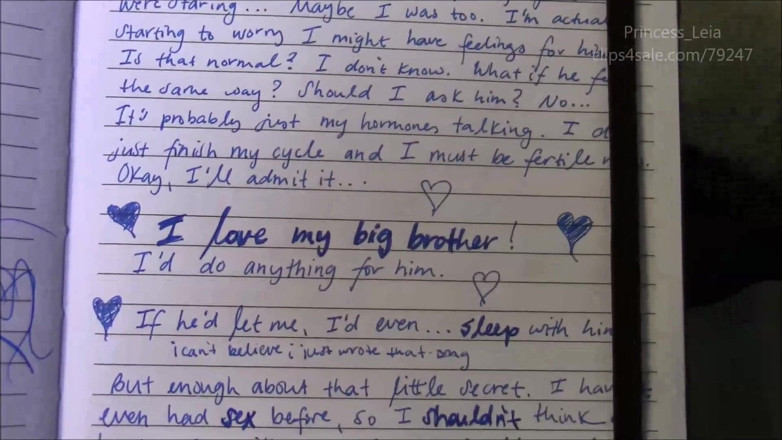 were staring... Maybe I was too. I'm
starting to worry I might have feelings for
Is that normal? I don't know. What if he
the same way? Should I ask him? No...
It's probably just my hormones talking. I
just finish my cycle and I must be fertile
Okay, I'll admit it...
I love my big brother!
I'd do anything for him.
If he'd let me, I'd even... sleep with
i can't believe i just wrote that omg
But enough about that little secret. I
even had sex before, so I shouldn't think
Princess_Leia
clips4sale.com/79247